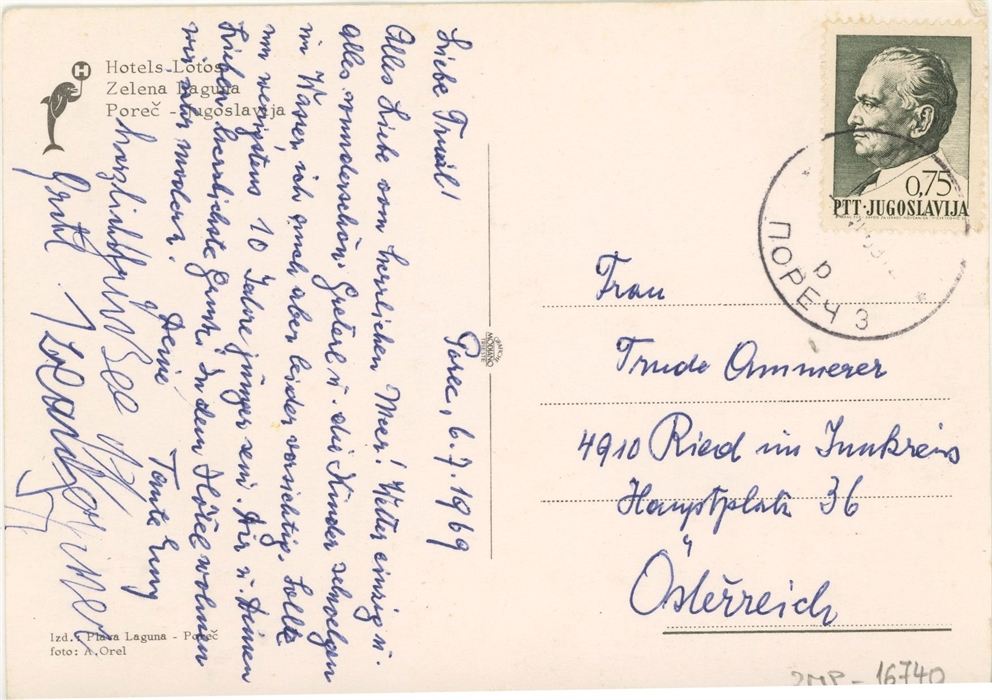 Hotels-Lotos
Zelena Laguna
Poreč - Jugoslavija
Porec, 6.7.1969
Liebe Trudl!
Alles Liebe vom herrlichen Meer! Wetter einzig u.
alles wunderschön. Greterl u. die Kinder schwelgen
im Wasser, ich auch aber leider vorsichtig. Sollte
um wenigstens 10 Jahre jünger sein. Dir u. Deinen
Lieben herzlichste Grüße. In dem Hotel wohnen
wir, nur modern.
Deine Tante Emy
herzliche Grüße
Gretl.
Izd.: Plava Laguna - Poreč
foto: A. Orel
0,75
PTT·JUGOSLAVIJA
ПОРЕЧ 3
Frau
Trude Ammerer
4910 Ried im Innkreis
Hauptplatz 36
Österreich
16740